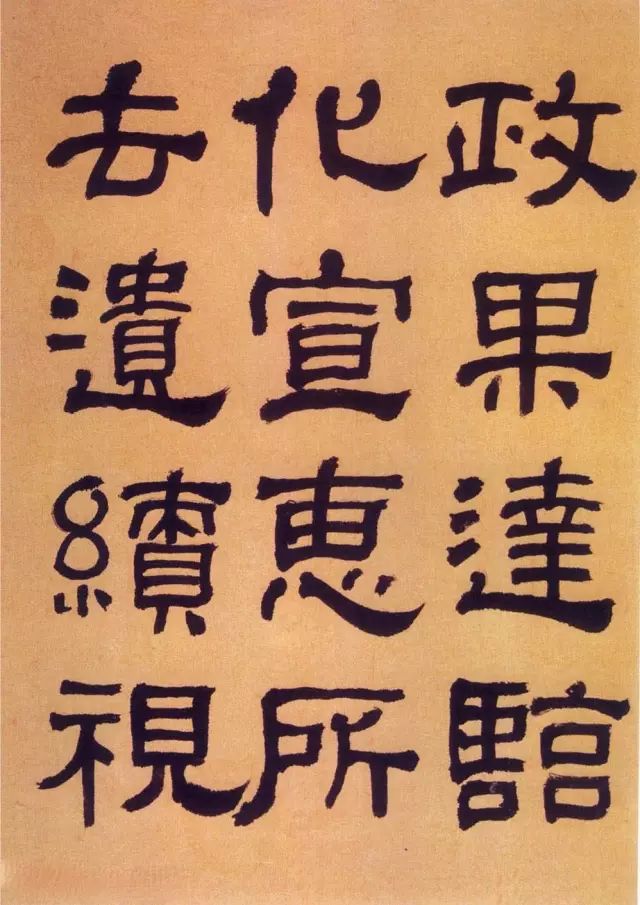 政果達臨
化宣惠所
去遺績視